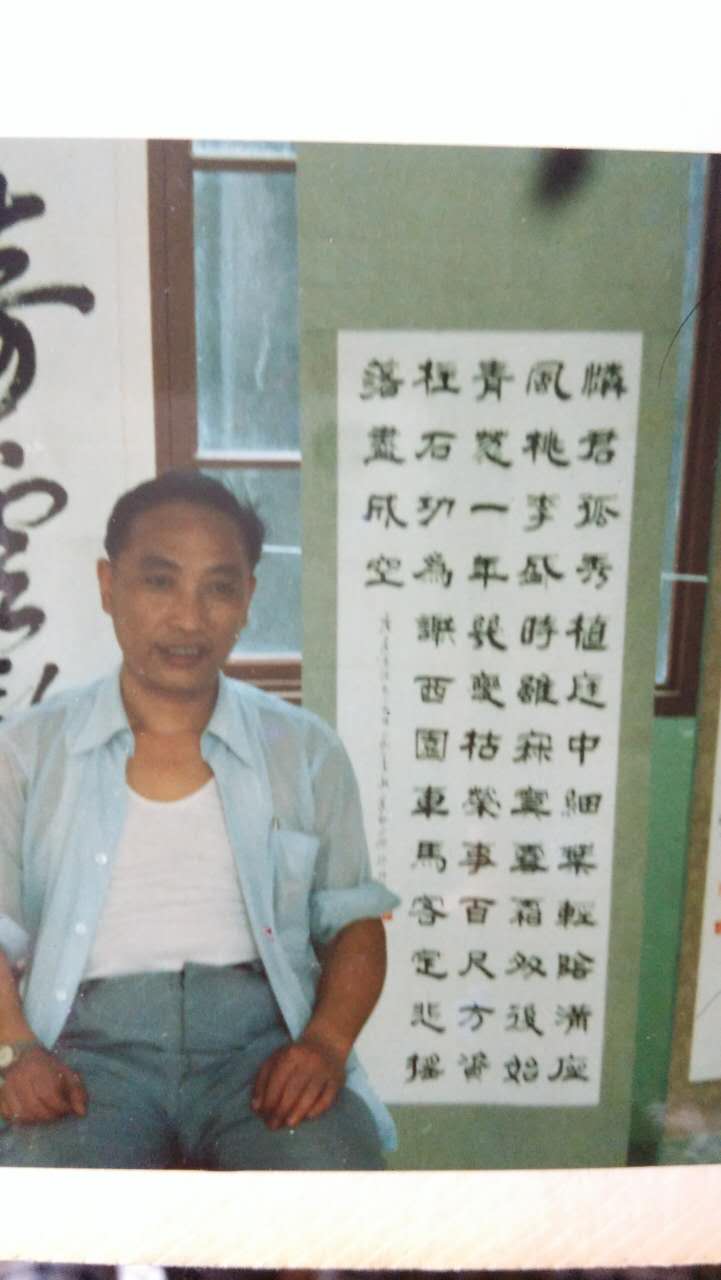 憐君孤秀植庭中細葉輕陰滿座
風桃李盛時雖寂寞雪霜多後始
青葱一年幾變枯榮事百尺方資
柱石功為謝西園車馬客定悲搖
落盡成空
雲